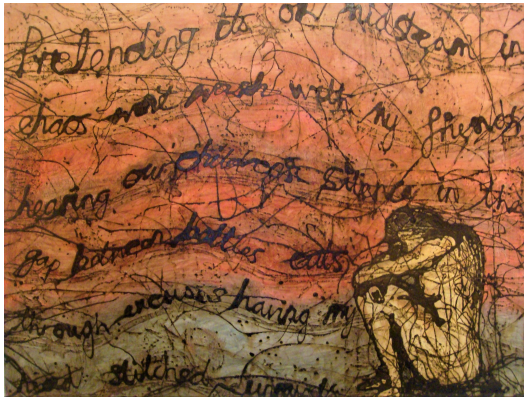 Pretending its ok in
chaos wont wash with my friends
hearing our silence in the
gap between bottles eats
through excuses having my
head stitched